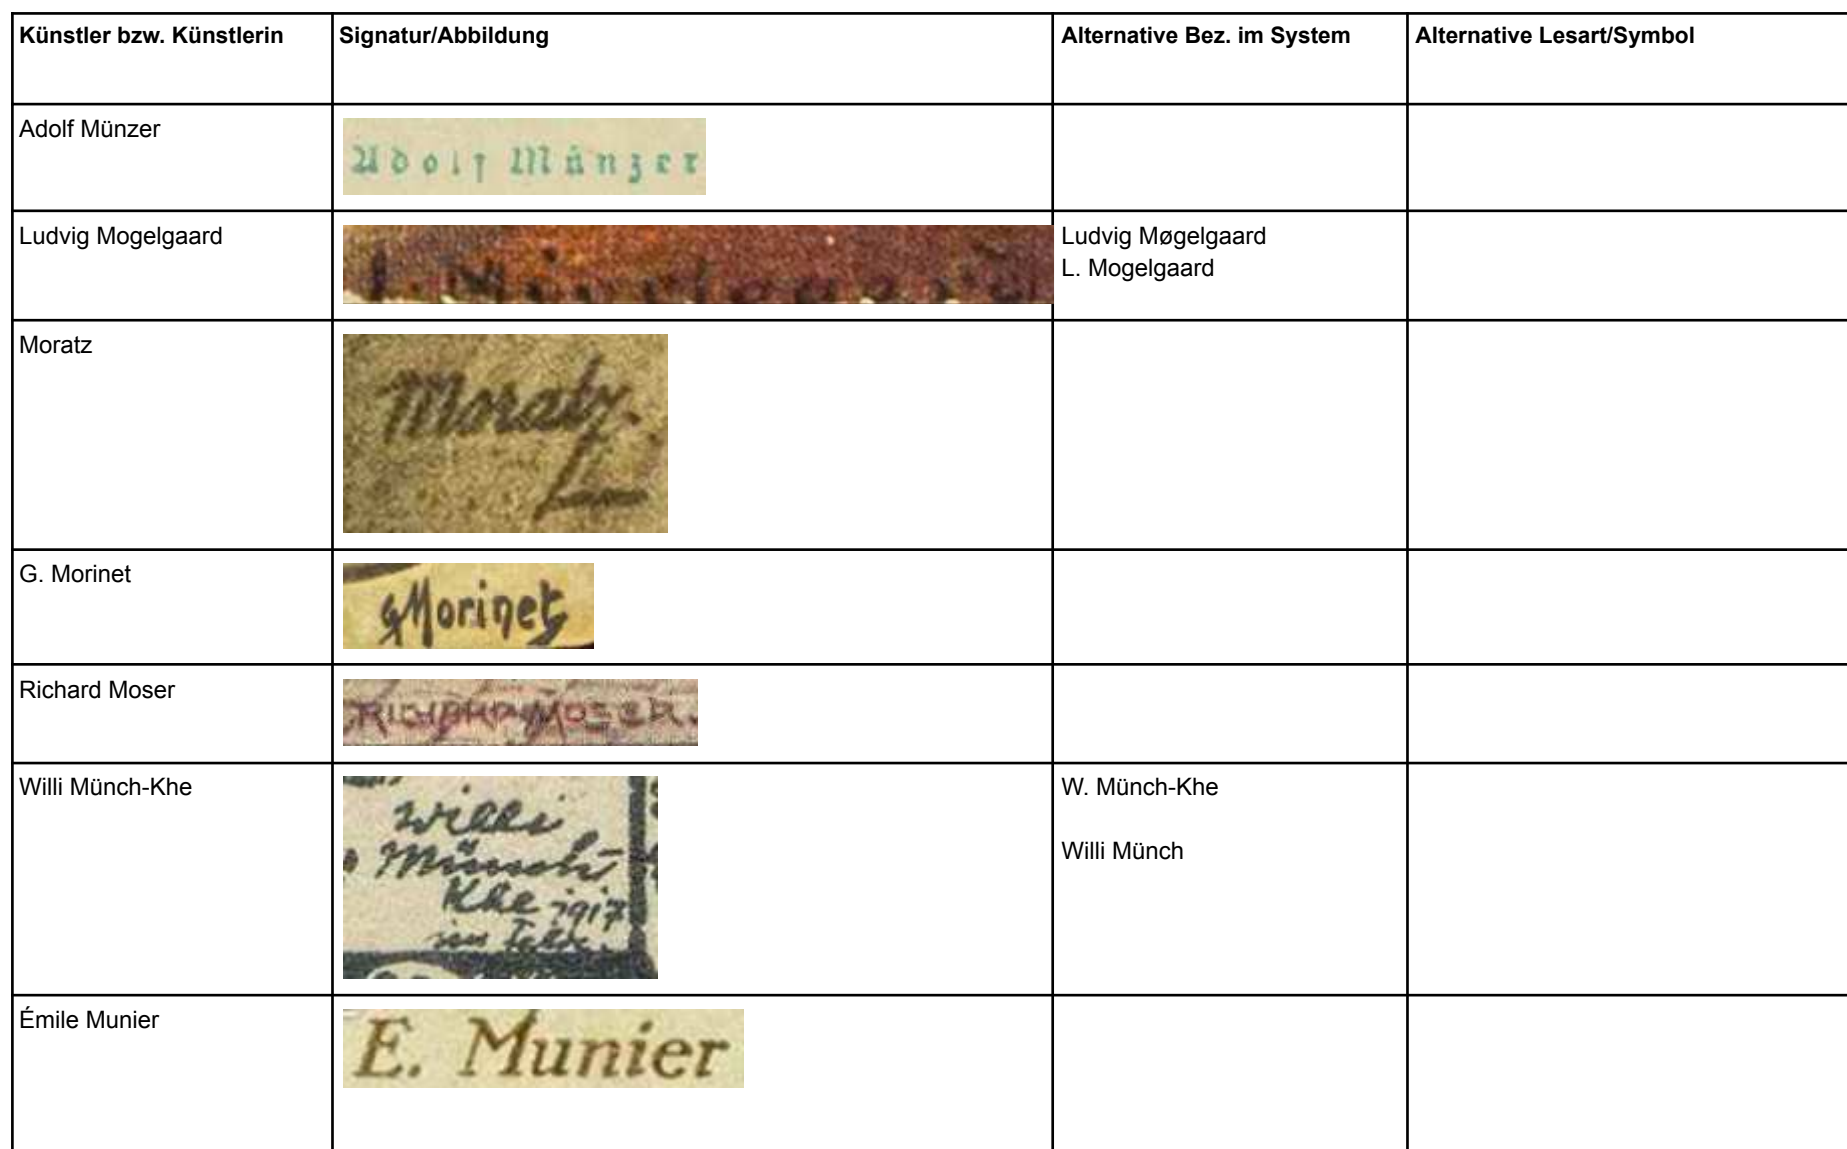 Künstler bzw. Künstlerin Signatur/Abbildung Alternative Bez. im System Alternative Lesart/Symbol
Adolf Münzer
Adolf Münzer
Ludvig Mogelgaard
Ludvig Møgelgaard
L. Mogelgaard
Moratz
Moratz.
G. Morinet
G Morinet
Richard Moser
RICHARD MOSER.
Willi Münch-Khe
Willi
Münch
Khe 1917
im Felde.
W. Münch-Khe
Willi Münch
Émile Munier
E. Munier